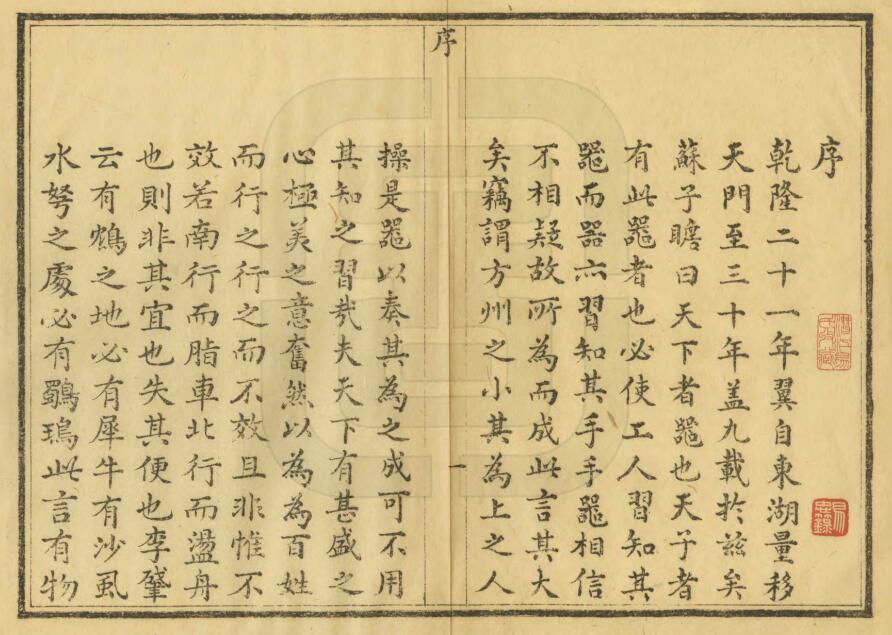 序
乾隆二十一年翼自東湖量移
天門至三十年盖九載扵兹矣
蘇子瞻曰天下者噐也天子者
有此噐者也必使工人習知其
噐而器亦習知其手手噐相信
不相疑故所為而成此言其大
矣竊謂方州之小其為上之人
序
一
操是噐以奏其為之成可不用
其知之習哉夫天下有甚盛之
心極美之意奮然以為為百姓
而行之行之而不效且非惟不
效若南行而脂車北行而盪舟
也則非其宜也失其便也李肇
云有鴆之地必有犀牛有沙虱
水弩之處必有鸀此言有物